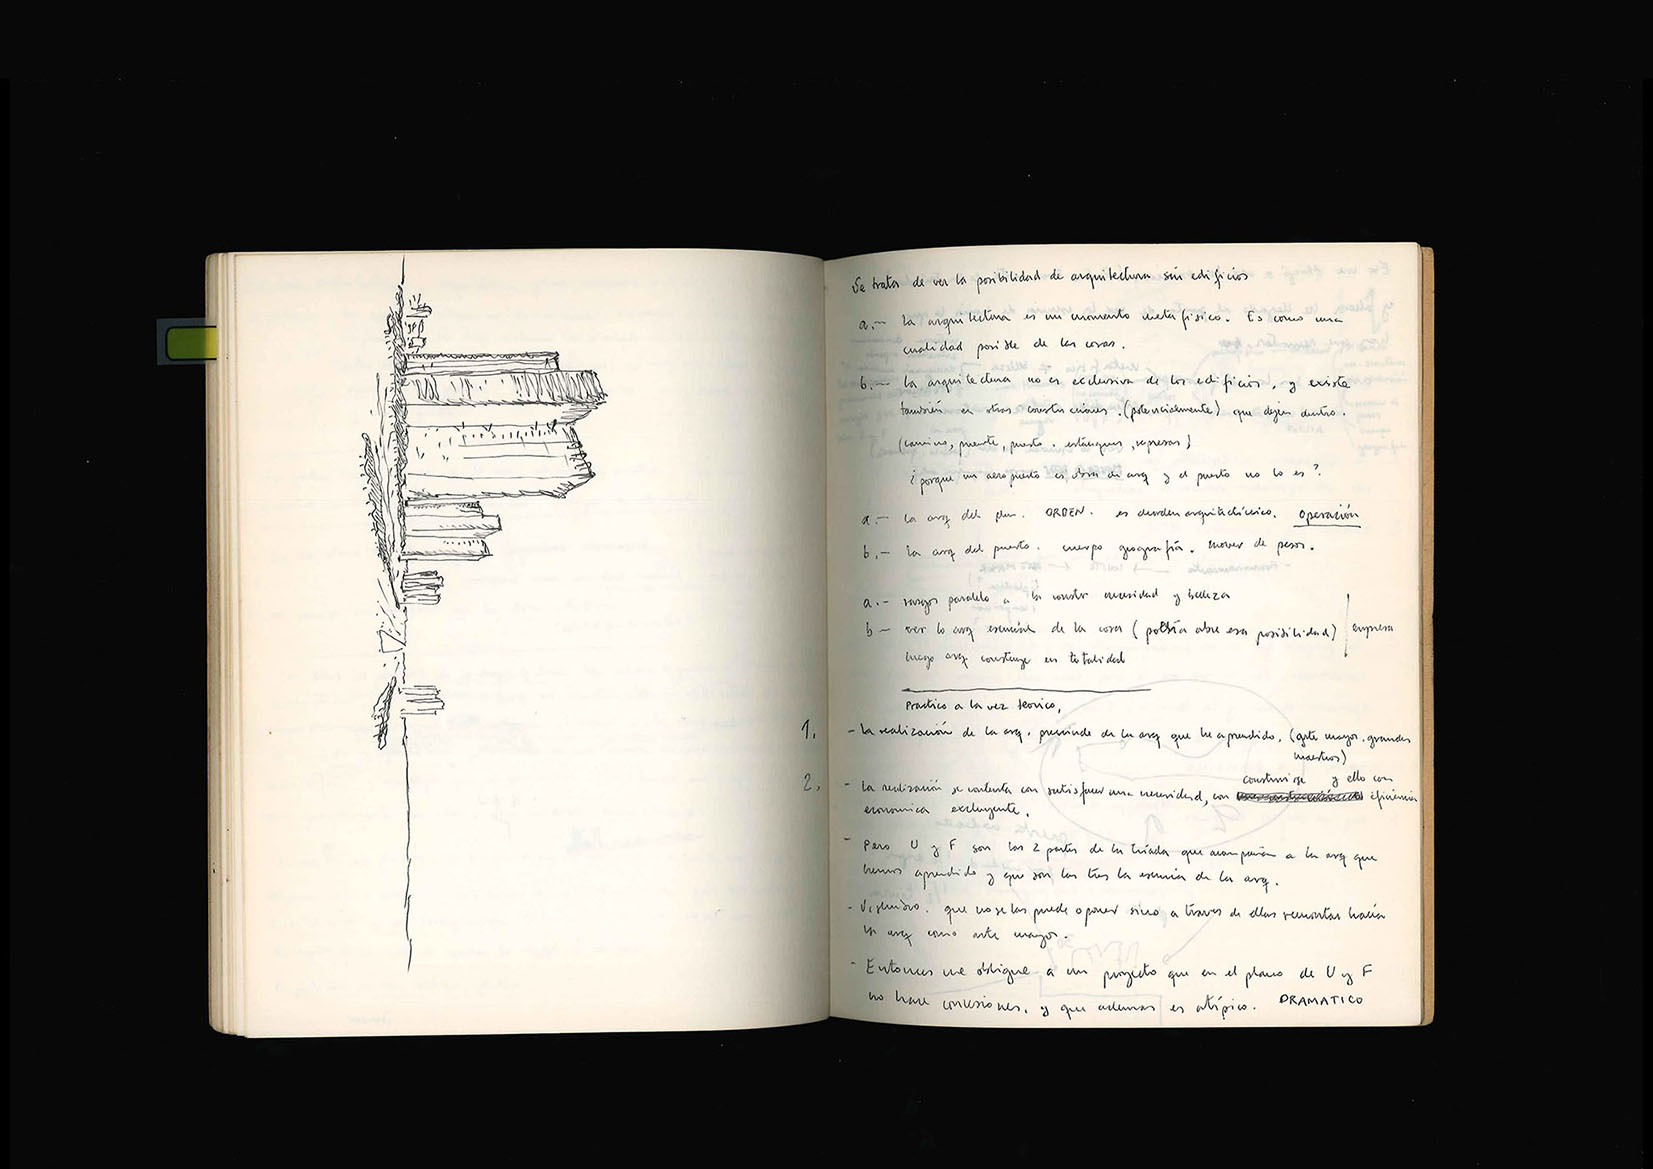 Se trata de ver la posibilidad de arquitectura sin edificios
a.- la arquitectura es un momento metafisico. Es como una
cualidad posible de las cosas.
b.- la arquitectura no es exclusiva de los edificios, y existe
también en otras construcciones. (potencialmente) que dejen dentro.
(camino, puente, puerto, estanques, represas)
¿porque un aeropuerto es obra de arq y el puerto no lo es?
a.- la arq del ORDEN. es arquitectónico. Operación
b.- la arq del puerto. cuerpo geografía. mover de pesos.
a.- paralelo a la constr necesidad y belleza
b- ver lo arq esencial de la cosa (poesía abre esa posibilidad) empresa
luego arq construye en totalidad
Practico a la vez teorico,
1. - La realización de la arq. prescinde de la arq que he aprendido. (arte mayor. grandes
maestros)
construirse y ello con
2. - La realización se contenta con satisfacer una necesidad, con eficiencia
economica excluyente.
- Pero U y F son las 2 partes de la tríada que acompañan a la arq que
hemos aprendido y que son las tres la esencia de la arq.
- que no se las puede oponer sino a traves de ellas remontar hacia
la arq como arte mayor.
- Entonces me obligue a un proyecto que en el plano de U y F
no hace concesiones, y que ademas es atípico. DRAMATICO